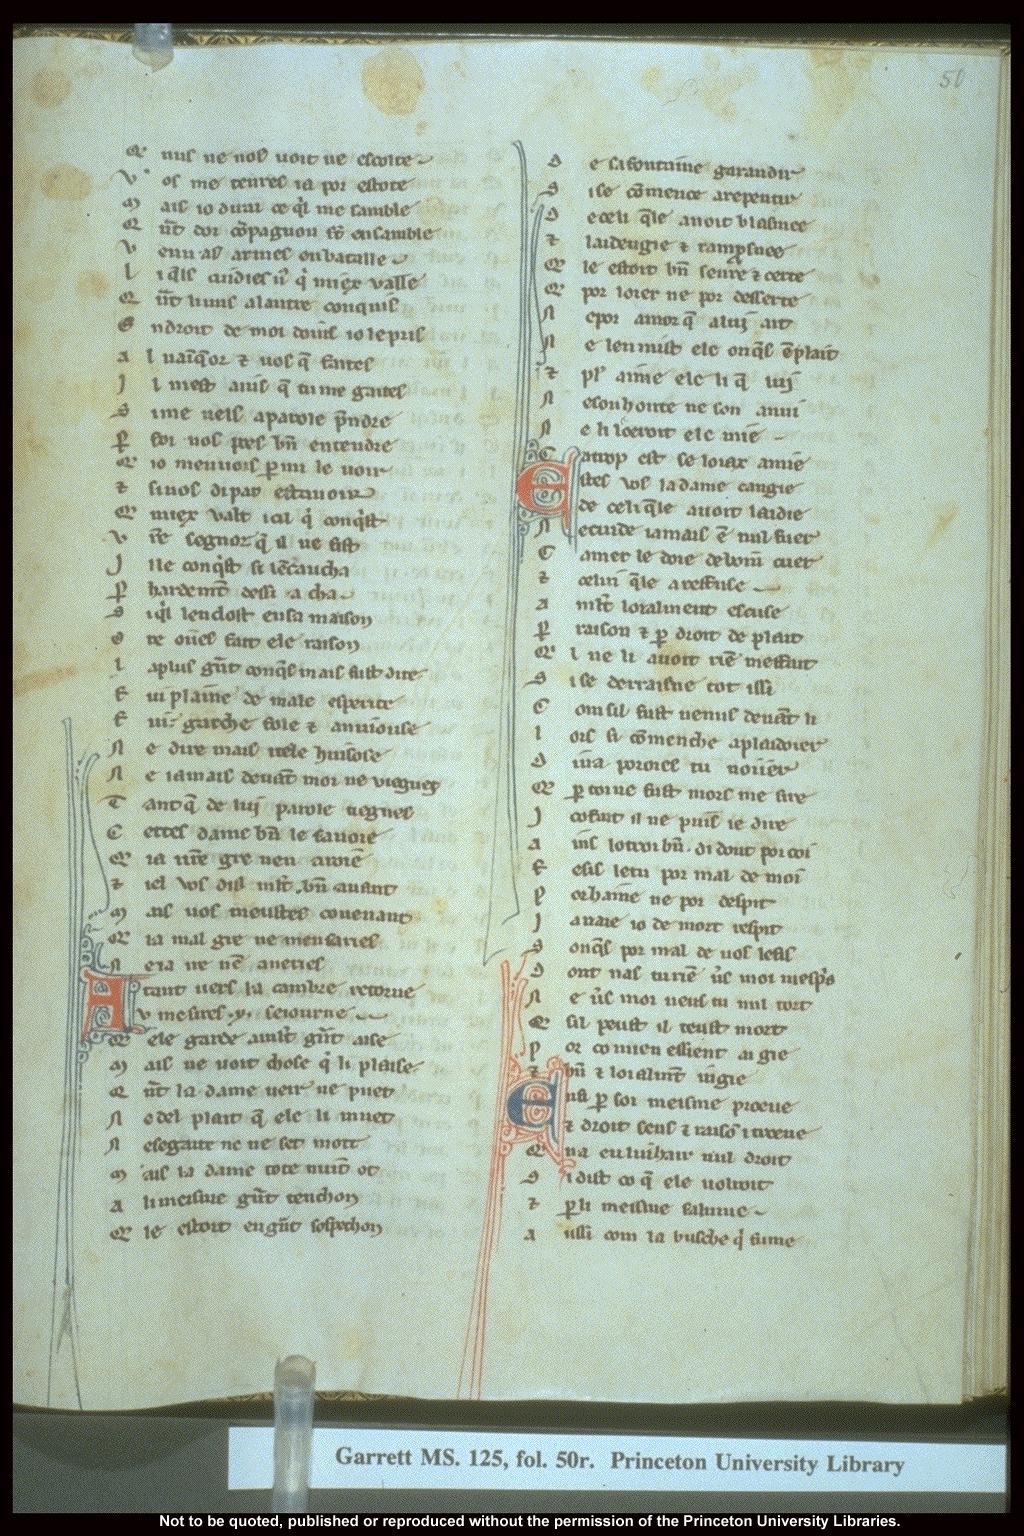 50
Q nus ne nos voit ne escoute
V os me tenres ia por estoute
M ais io dirai ce q̃l me samble
Q ñt doi cõpagnon sõt ensamble
V enu as armes en bataille
L i q̃ls cuidies vꝰ q̃ miex vaille
Q ñt li uns a lautre conquis
E ndroit de moi doins io le pris
A l vaĩq̃or ⁊ vos q̃ faites
I l mest auis q̃ tu me gaites
S i me vels a parole p̃ndre
P ꝑ foi vos poes bñ entendre
Q io men vois ꝑ mi le voir
⁊ si vos di par estavoir
Q miex valt icil q̃ conq̃st
V r̃e segnor q̃ il ne fist
I l le conq̃st si lẽcaucha
ꝑ hardemẽt dessi a cha
S i q̃l lenclost en sa maison
O re oũes fait ele raison
L a plus gñt conq̃s mais fust dite
F ui plaine de male esperite
F ui garche fole ⁊ anuiouse
N e dire mais itele huisose
N e iamais deuãt moi ne viegnes
T ant q̃ de lui parole tiegnes
C ertes dame bñ le savoie
Q ia ure gre nen auroie
⁊ iel vos dis mlt̃ bñ auant
M ais vos meustes couenant
Q ia mal gre ne men saries
N e ia ne mẽ
A tant vers la cambre retorne
V mesires .y. seiourne
Q ele garde a mlt̃ gñt aise
M ais ne voit chose q̃ li plaise
Q ñt la dame veir ne puet
N e del plait q̃ ele li muet
N e se garde ne ne set mot
M ais la dame tote nuit ot
A li meisme gñt tenchon
Q le estoit en gñt sospechon
D e sa fontaine garandir
S i se cõmence a repentir
D e celi q̃le auoit blasmee
⁊ laidengie ⁊ ramposnee
Q le estoit bñ seure ⁊ certe
Q por loier ne por desserte
N e por amor q̃ a lui ait
N e len mist ele onq̃s ẽ plait
⁊ plꝰ aime ele li q̃ lui
N e son honte ne son anui
N e li loeroit ele mie
C ar trop est se loiax amie
E stes vos la dame cangie
De celi q̃le auoit laidie
N e cuide iamais ẽ nul fuer
C amer le doie de bõin cuer
⁊ celui q̃le a refuse
A mlt̃ loialment escuse
P ꝑ raison ⁊ ꝑ droit de plait
Q l ne li auoit riẽ mesfait
S i se derraisne tot issi
C om sil fust venus deuãt li
L ors si cõmenche a plaidoier
D iua poroies tu noier
Q ꝑ toi ne fust mors me sire
I cefait il ne puis ie dire
A ins lotroi bñ . di dont por coi
F esis letu por mal de moi
P or haine ne por despit
I a naie io de mort respit
S onq̃s por mal de vos le fis
D ont nas tu riẽ vꝰ moi mespꝰs
N e vꝰ moi neus tu nul tort
Q sil peust il teust mort
P or co mien essient ai gie
⁊ bñ ⁊ loialmt̃ iugie
E nsi ꝑ soi meisme proeue
⁊ droit sens ⁊ raisõ i troeue
Q na en lui hair nul droit
S i dist co q̃ ele voldroit
⁊ ꝑ li meisme salume
A ussi com la busche q̃ fume
Garrett MS. 125, fol. 50r. Princeton University Library
Not to be quoted, published or reproduced without the permission of the Princeton University Libraries.